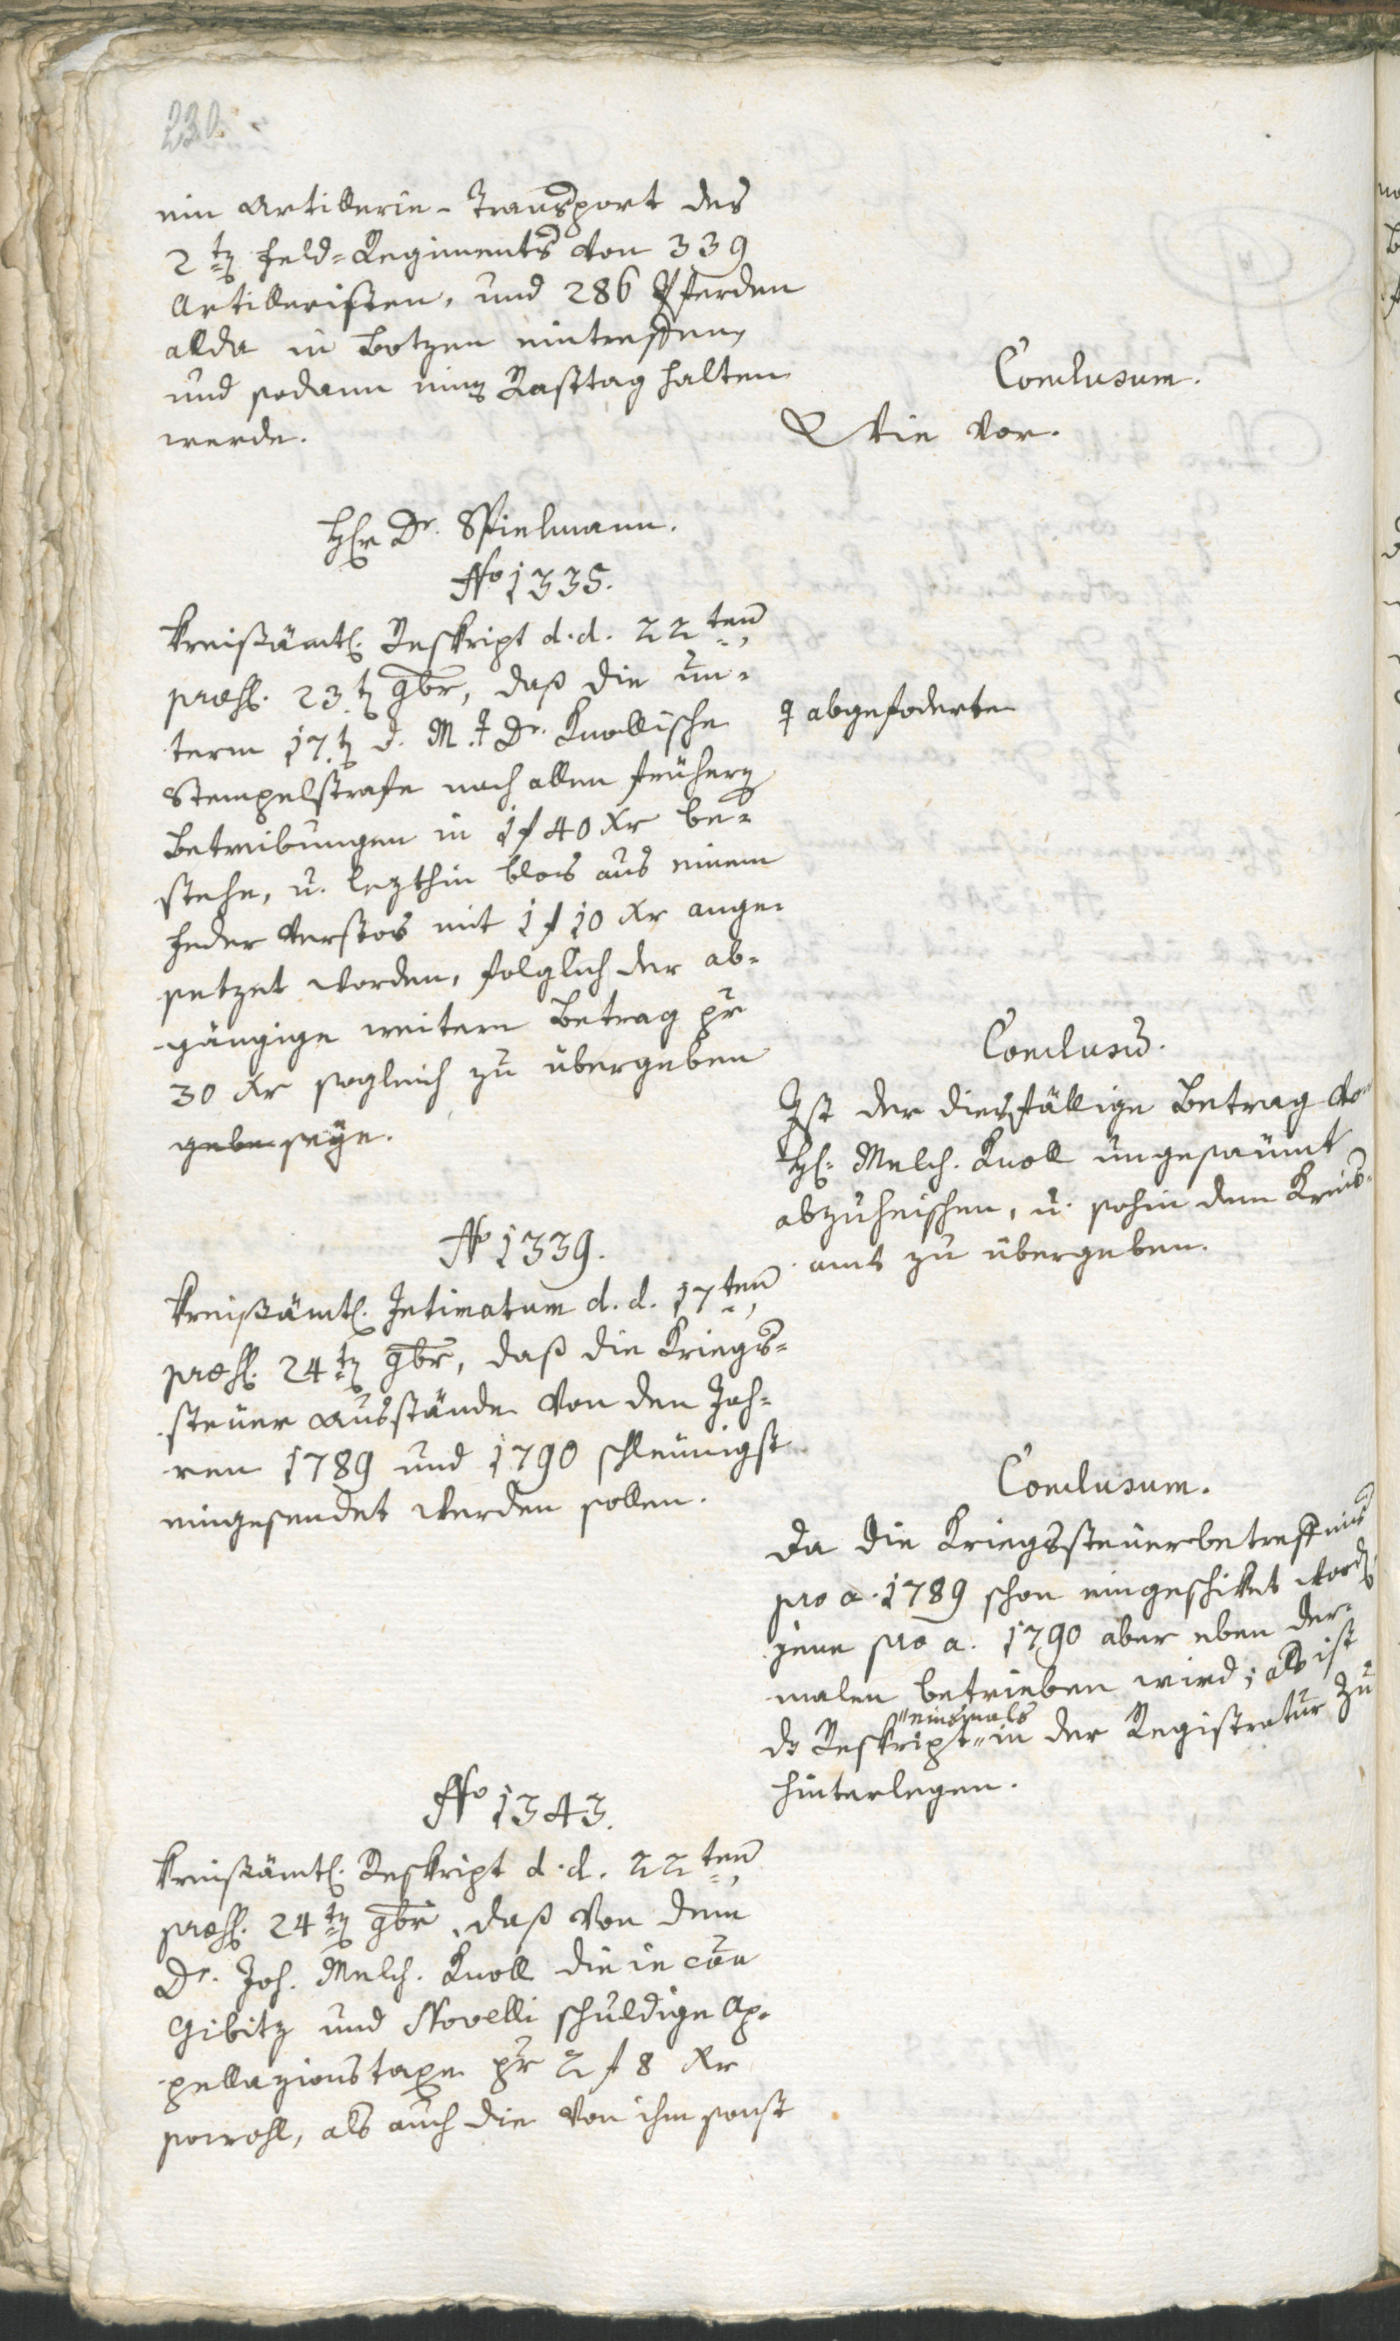 230.
ein Artillerie-Transport des
2tn Feld-Regiments von 339
Artilleristen, und 286 Pferden
alda in Botzen eintreffen,
und sodann einen Rasttag halten
werde.
Conclusum.
Wie vor.
Hr Dr. Spielmann.
No 1335.
Kreißämtl. Reskript d. d. 22ten
præs. 23.tn 9br, daß die un-
term 17.tn d. M. ♀ Dr. Knollische
♀ abgefoderte
Stempelstrafe nach allen früheren
Betreibungen in 1 f 40 Xr be-
stehe, u. lezthin blos aus einem
Feder Verstos mit 1 f 10 Xr ange-
setzet worden, folglich der ab-
gängige weitere Betrag pr
30 Xr sogleich zu übergeben
geben seye.
Conclusũ.
Ist der diesfällige Betrag von
H. Melch. Knoll ungesäumt
abzuheischen, u. sohin dem Kreis-
amt zu übergeben.
No 1339.
Kreißämtl. Intimatum d. d. 17ten
præs. 24tn 9br, daß die Kriegs-
steuer Ausstände von den Jah-
ren 1789 und 1790 schleunigst
eingesendet werden sollen.
Conclusum.
Da die Kriegssteuerbetreffnis
pro a. 1789 schon eingeschiket word.
jene pro a. 1790 aber eben der-
malen betrieben wird; als ist
"einsmals
ds Reskript " in der Registratur zu
hinterlegen.
No 1343.
Kreißämtl. Reskript d. d. 22ten
præs. 24tn 9br, daß von dem
Dr. Joh. Melch. Knoll die in cãa
Gibitz und Novelli schuldige Ap-
pellazionstaxe pr 2 f 8 Xr
sowohl, als auch die von ihm sonst